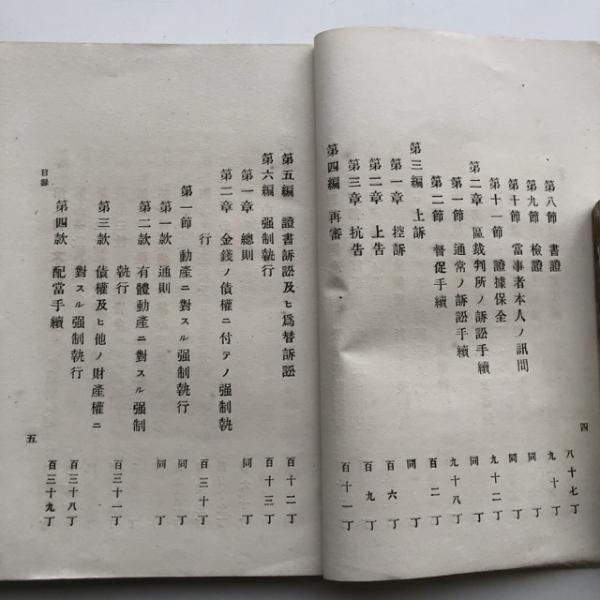 第八節 書證 八十七丁
第九節 檢證 九十丁
第十節 當事者本人ノ訊問 同丁
第十一節 證據保全 同丁
第二章 區裁判所ノ訴訟手續 九十二丁
第一節 通常ノ訴訟手續 同丁
第二節 督促手續 九十八丁
第三編 上訴 百二丁
第一章 控訴 同丁
第二章 上告 百六丁
第三章 抗告 百九丁
第四編 再審 百十一丁
四
第五編 證書訴訟及ヒ爲替訴訟 百十二丁
第六編 强制執行 百十三丁
第一章 總則 同丁
第二章 金錢ノ債權ニ付テノ强制執
行 百三十丁
第一節 動產ニ對スル强制執行 同丁
第一款 通則 同丁
第二款 有體動產ニ對スル强制
執行 百三十一丁
第三款 債權及ヒ他ノ財產權ニ
對スル强制執行 百三十八丁
第四款 配當手續 百三十九丁
目錄
五